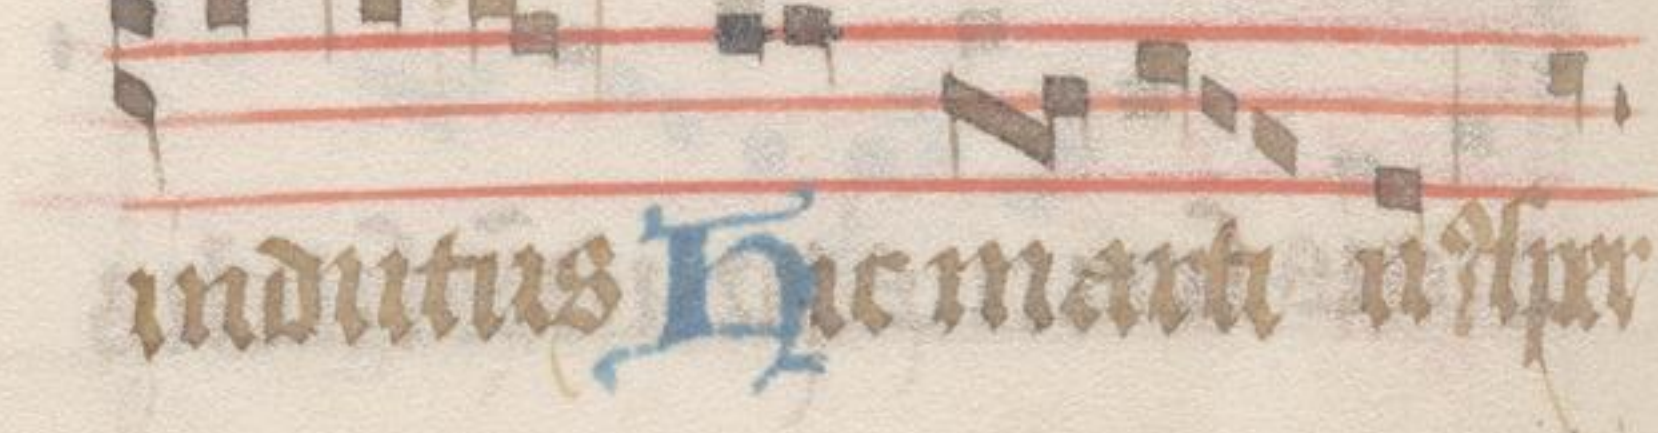 indutus Hic marti nꝰ sper